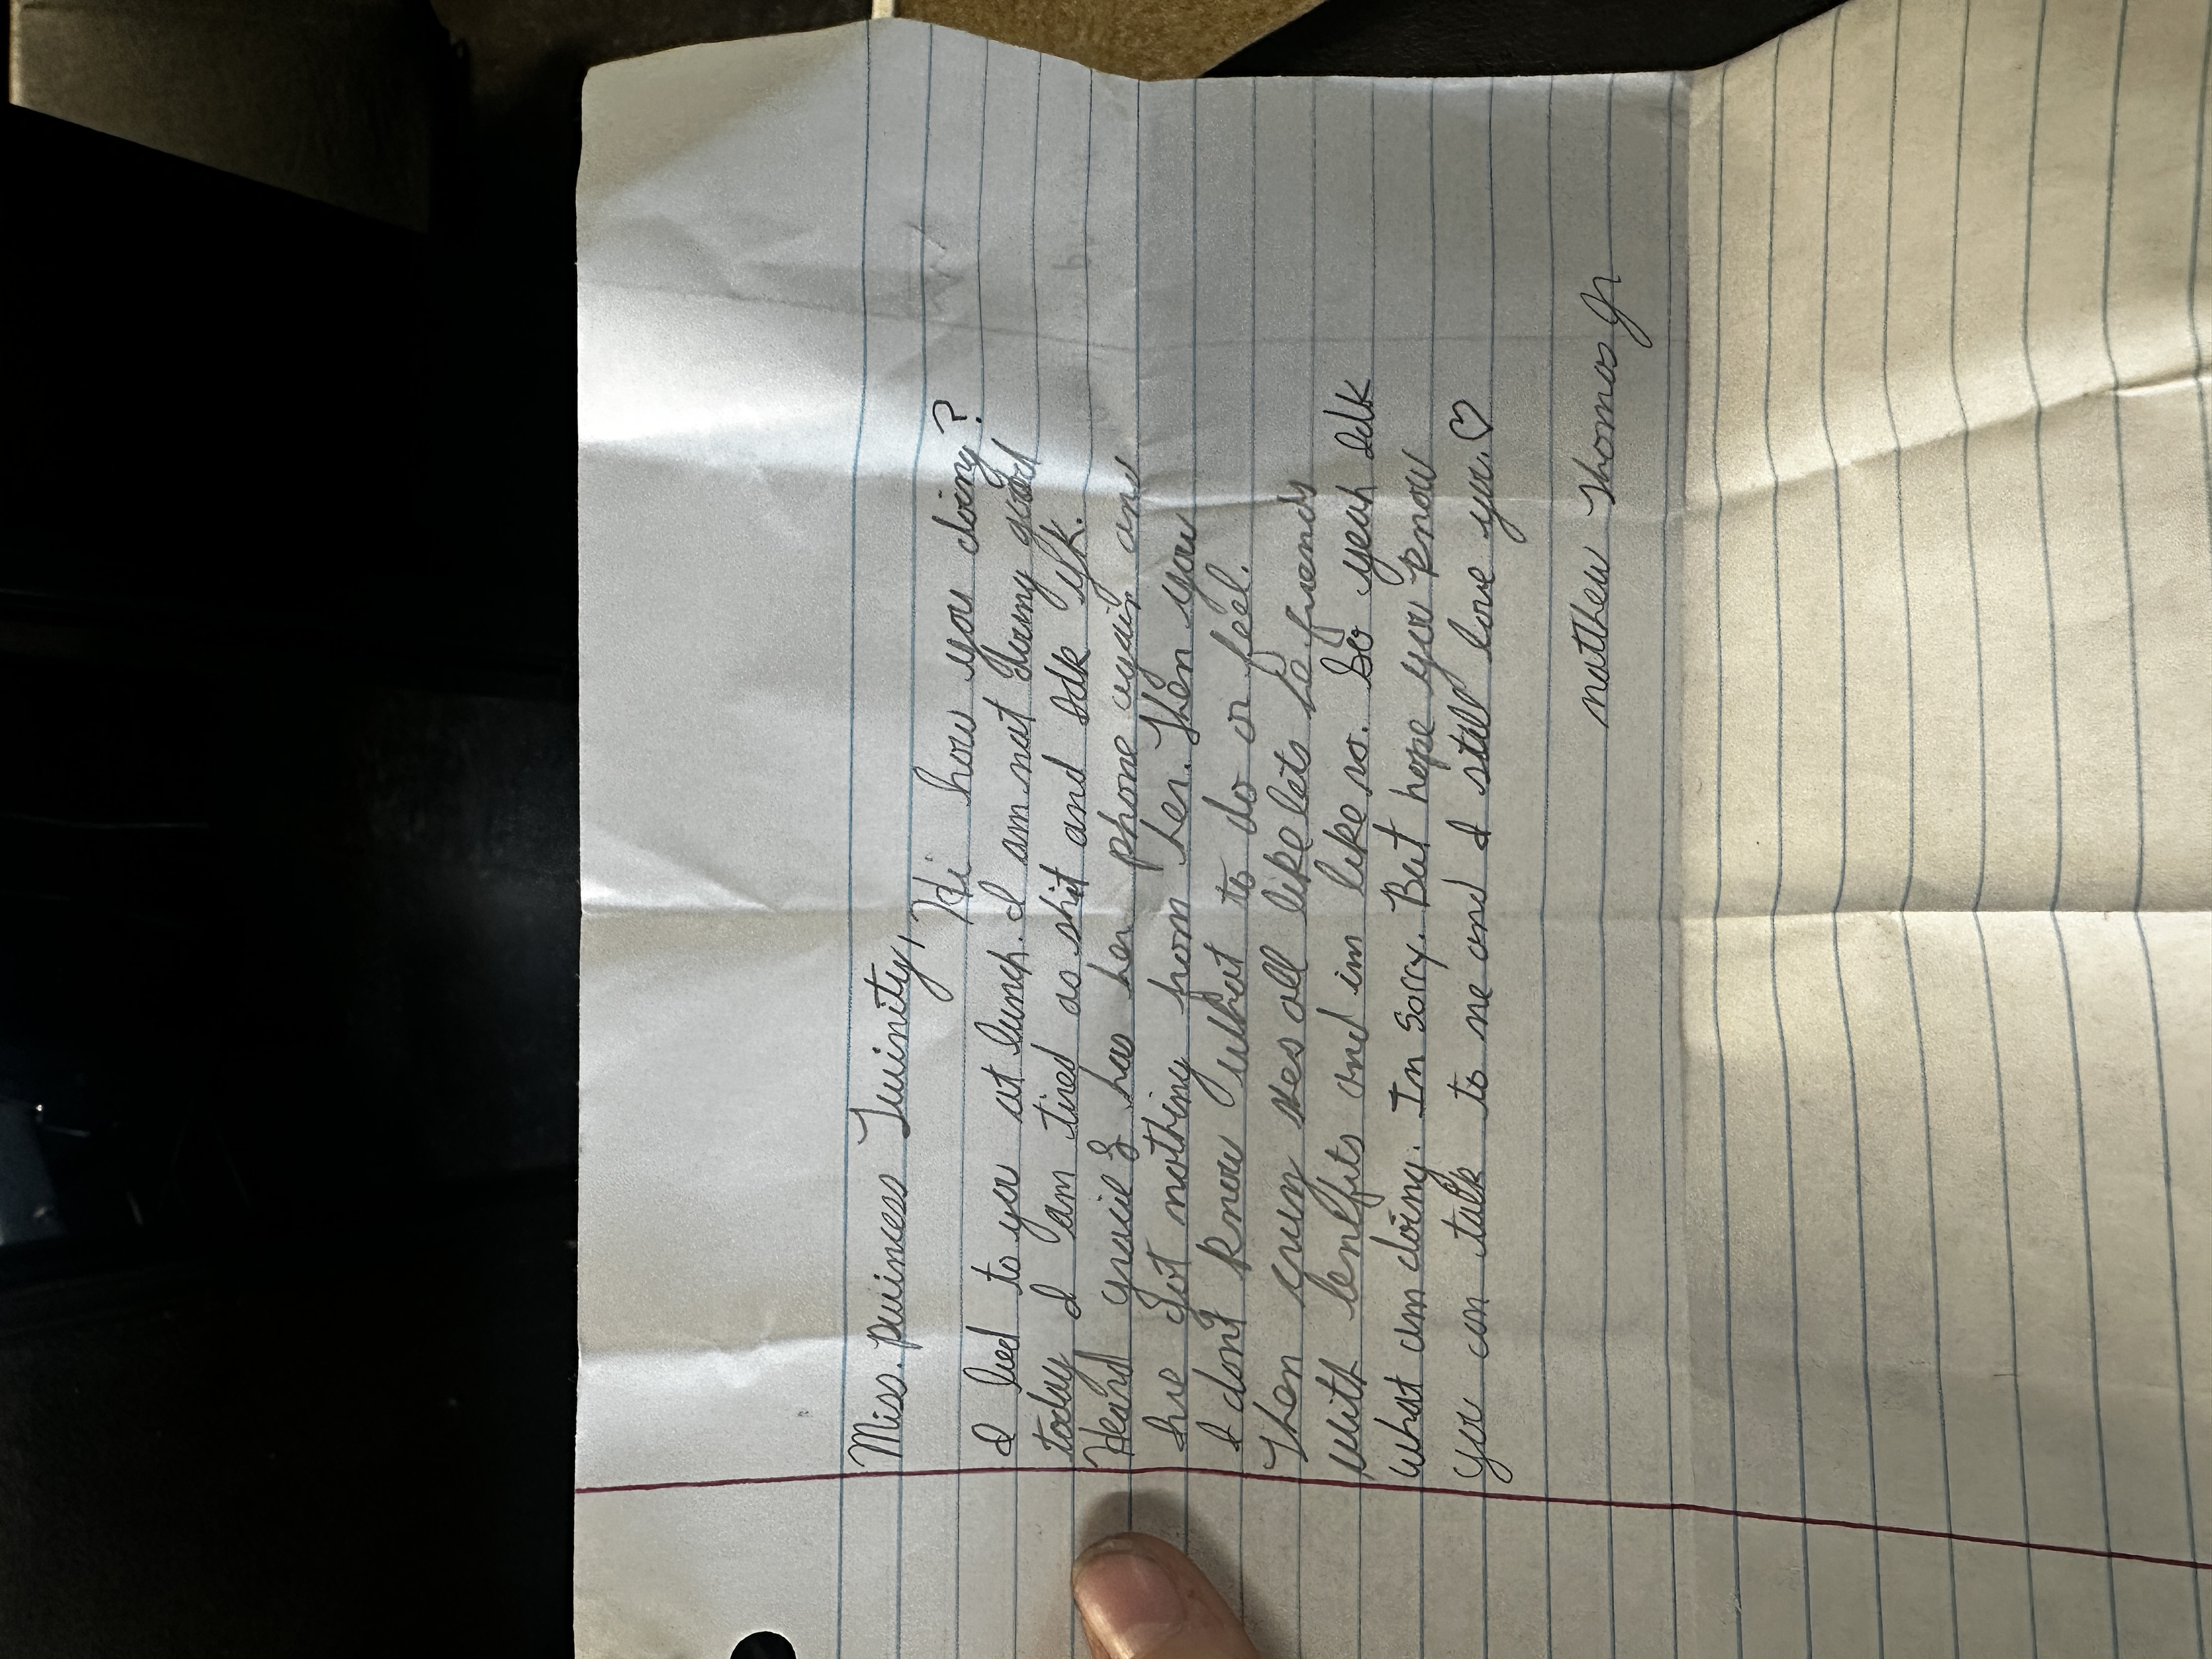 Miss. princess Trinity,
Hi how you doing?
I lied to you at lunch. I am not doing good
today I am tired as shit and idk yk.
Heard gracie has her phone again and
she got nothing from her. Then you
I dont know what to do or feel.
Then all like lets be friends
with benefits and im like no. So yeah idk
what am doing. Im sorry. But hope you know
you can talk to me and I still love you. ♡
Matthew Thomas Jr